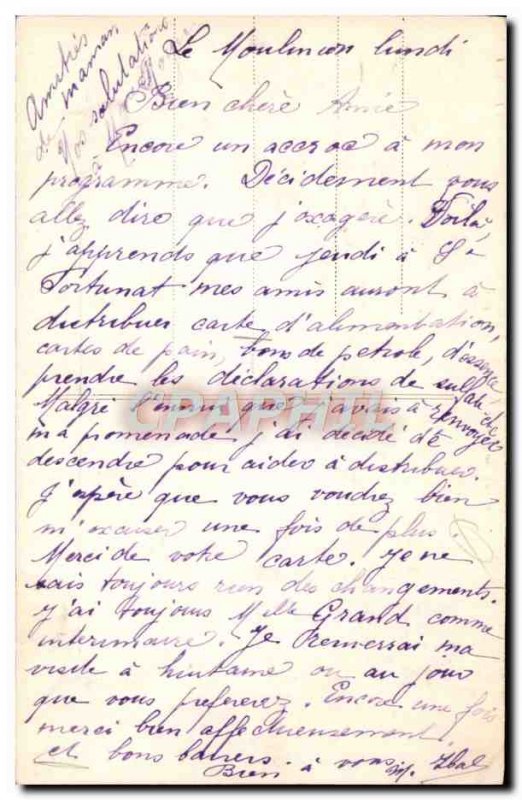 Amitiés
de maman
Nos salutations
Le Moulinon lundi
Bien chère Amie
Encore un accroc à mon
programme. Décidement vous
allez dire que j'exagère. Voilà,
j'apprends que jeudi à St
Fortunat mes amis auront à
distribuer carte d'alimentation,
cartes de pain, bons de petrole, d'essence,
prendre les déclarations de
Malgré l'ennui que j'avais à renvoyer
ma promenade j'ai décidé de
descendre pour aider à distribuer.
J'espère que vous voudrez bien
m'excuser une fois de plus.
Merci de votre carte. Je ne
sais toujours rien des changements.
J'ai toujours Melle Grand comme
interimaire. Je remercrai ma
visite à huitaine ou au jour
que vous prefererez. Encore une fois
merci bien affectueusement
et bons baisers.
Bien à vous
CPAPHIL